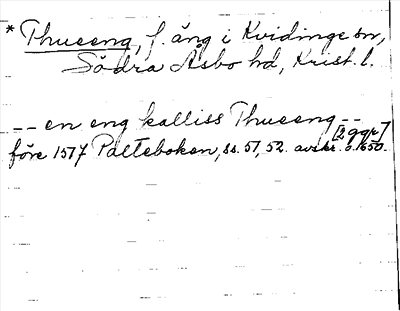 * Thuseng, f. äng i Kvidinge sn,
Södra Åsbo hd, Krist. l.
-- en eng kalliss Thuseng --
[2 ggr]
före 1517 Palteboken, ss. 51, 52. avskr. o. 1650.